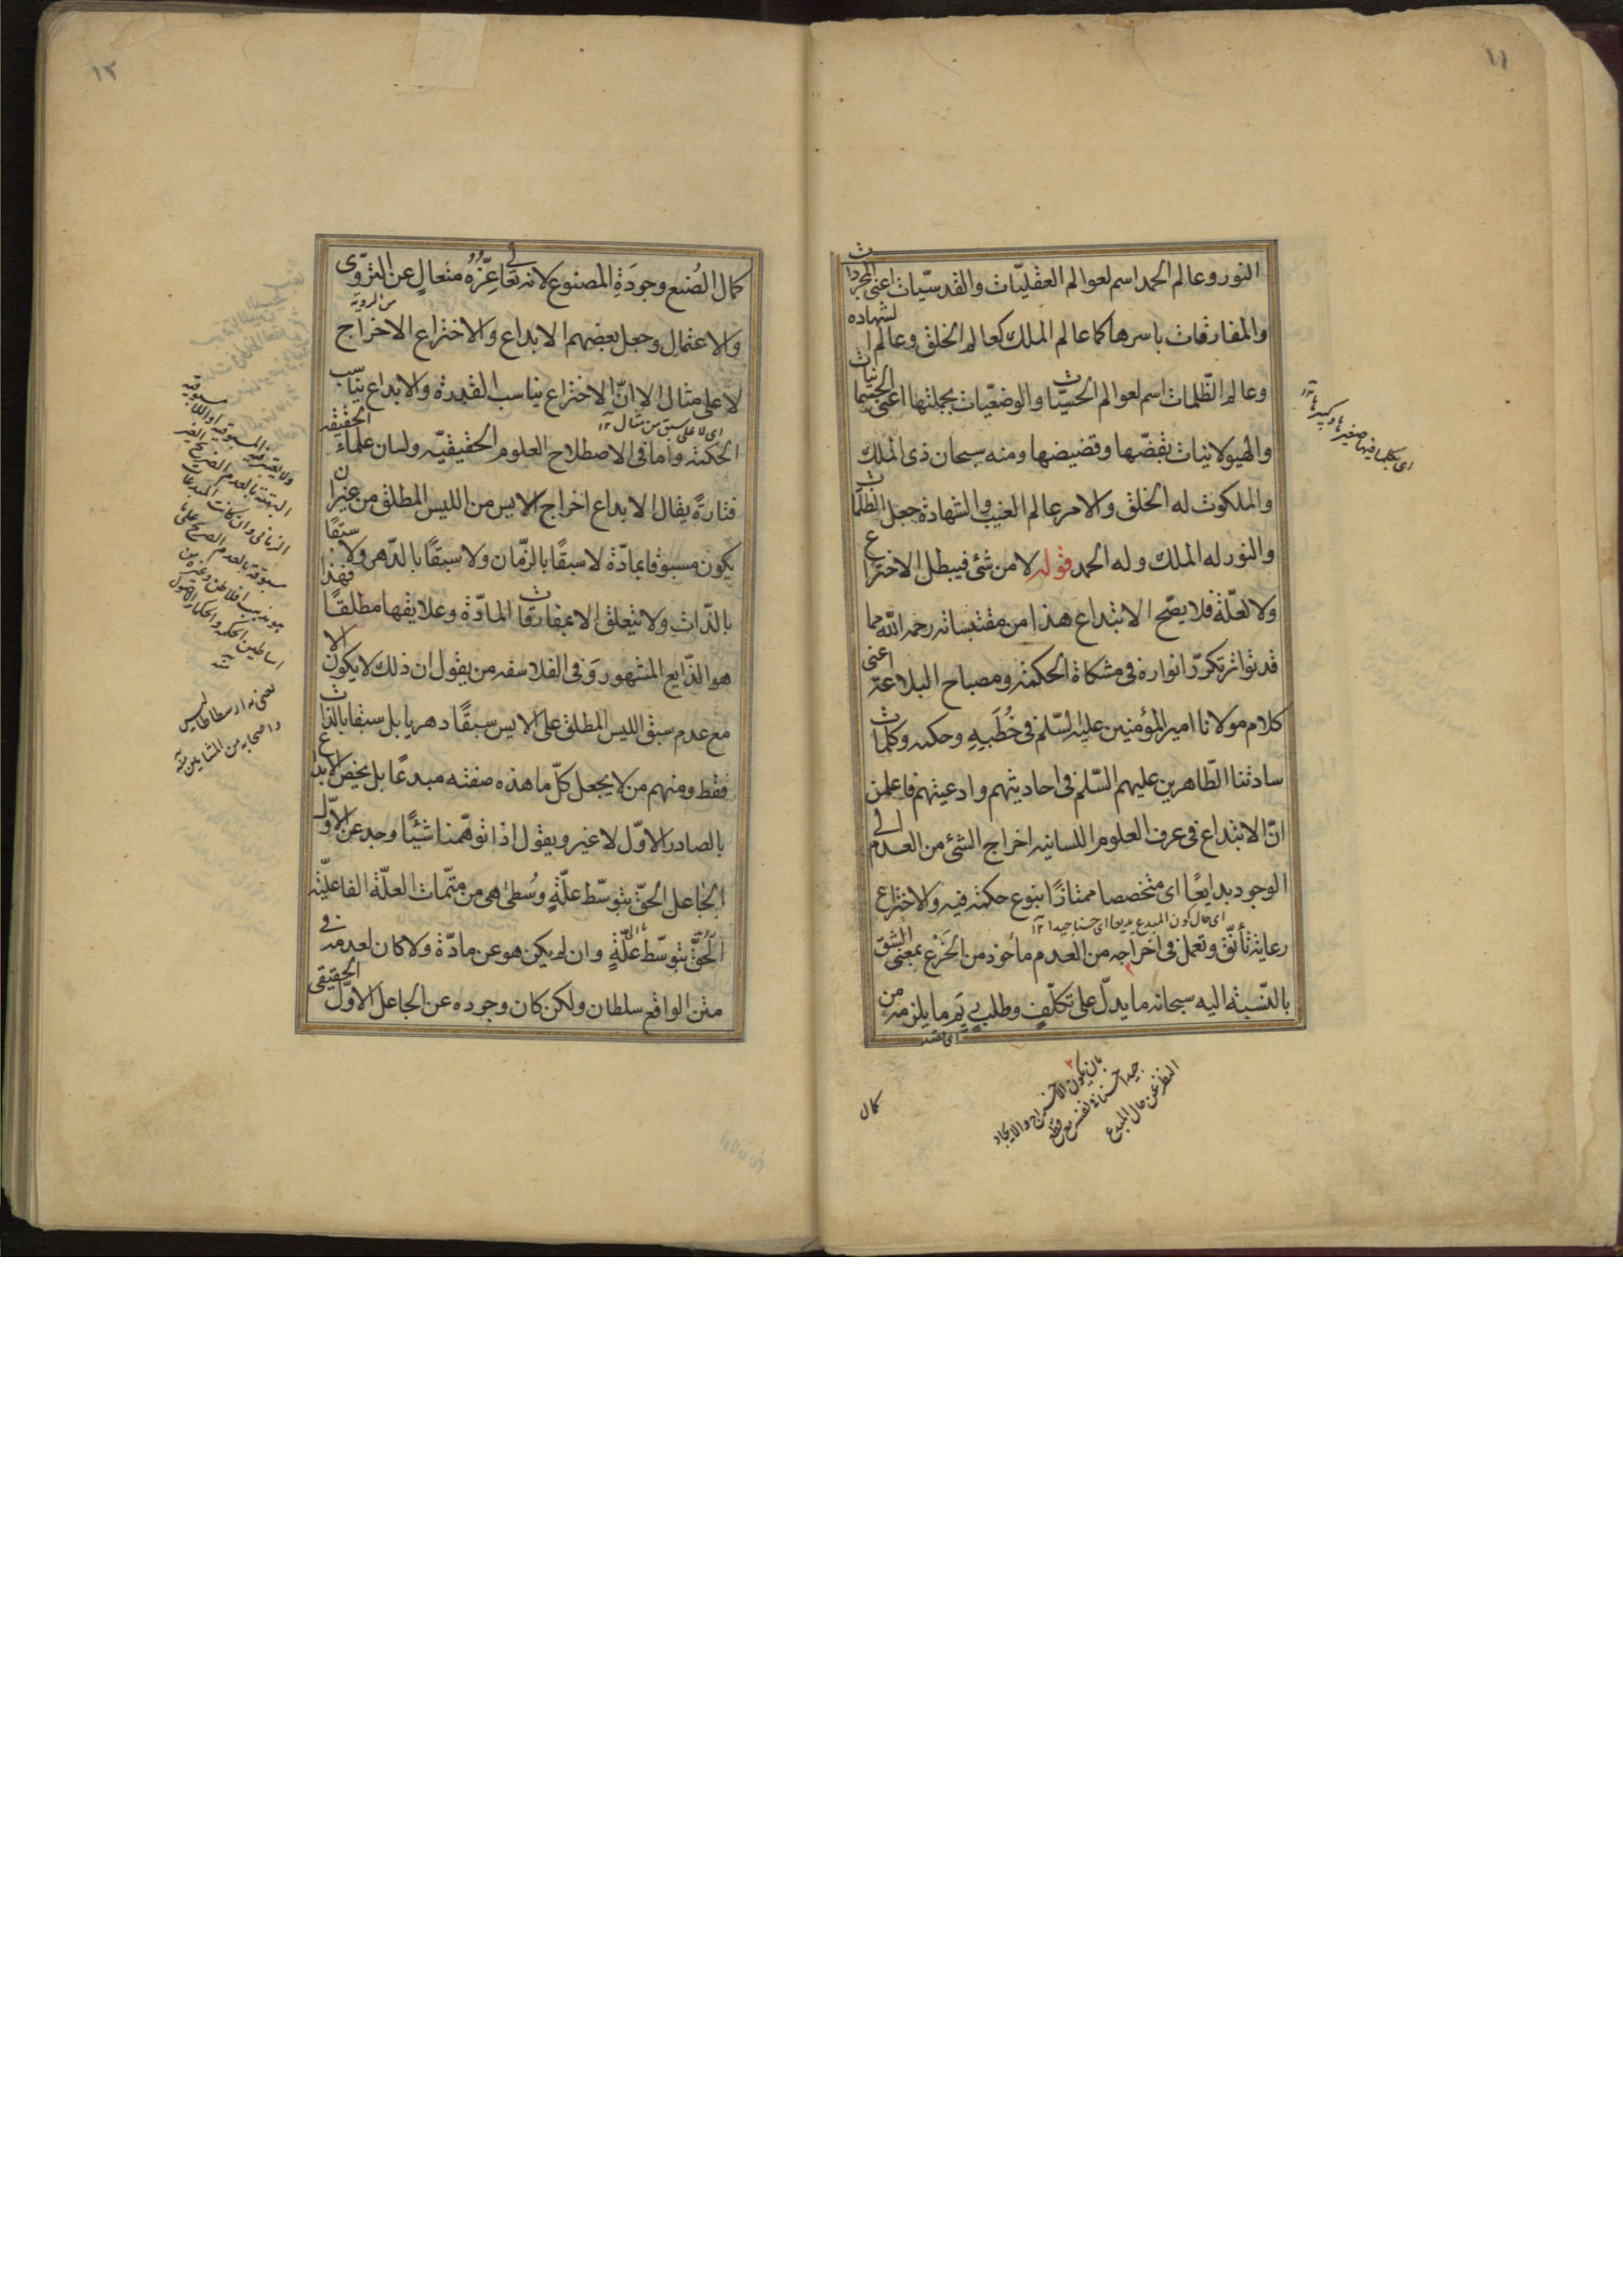 ١١
النور وعالم الحمد اسم لعوالم العقليّات والقدسيّات اعنى المجردات
والمفارقات باسرها كما عالم الملك كعالم الخلق وعالم الشهاده
وعالم الظّلمات اسم لعوالم الحسيّات والوضعيّات بجملتها اعنى الجسمانيات
والهيولانيات بقضّها وقضيضها ومنه سبحان ذى الملك
اى بكلها فيها صغيرها وكبيرها
والملكوت له الخلق والامر عالم الغيب والشهادة جعل الظلمات
والنور له الملك وله الحمد قوله لا من شئ فيبطل الاختراع
ولا لعلّة فلا يصّح الابتداع هذا من مقتبساته رحمه الله مما
قد تواتر تكرّر انواره فى مشكاة الحكمة ومصباح البلاغة اعنى
كلام مولانا امير المؤمنين عليه السّلم فى خُطَبِهِ وحكمه وكلمات
سادتنا الطّاهرين عليهم السّلم فى احاديثهم وادعيتهم فاعلمن
انّ الابتداع فى عرف العلوم اللسانيه اخراج الشئ من العدم الى
الوجود بدايعًا اى متخصصا ممتازًا بنوع حكمة فيه والاختراع
اى حال كون المبدع بديعا اى حسنا جيدا ١٢
رعاية تأنّق وتعمل فى اخراجه من العدم مأخوذ من الخَزْع بمعنى الشق
بالنّسبة اليه سبحانه ما يدلّ على تكلّف وطلب يَم ما يلزمه من
بان يكون الاختراع والايجاد
جيدا حسنا فى نفسه مع قطع
النظر عن حال المبدع
كمال
١٢
كمال الصُنع وجودَةِ المصنوع لانه تعالى عِزّهُ متعالٍ عن التروّى
من الروية
والاعتمال وجعل بعضهم الابداع والاختراع الاخراج
لا على مثال الا انّ الاختراع يناسب القدرة والابداع يناسب
اى لا على سبق من مثال ١٢
الحكمة واما فى الاصطلاح العلوم الحقيقيّه ولسان علماء الحقيقه
فتارةً يقال الابداع اخراج الايس من الليس المطلق من غير ان
يكون مسبوقا بمادّة لا سبقًا بالزّمان ولا سبقًا بالدّهر ولا سبقًا
بالذّات ولا يتعلق الا بمفارقات المادّة وعلايقها مطلقًا فهذا
هو الذّايع المشهور وَفى الفلاسفه من يقول ان ذلك لا يكون الا
مع عدم سبق الليس المطلق على الايس سبقًا دهريا بل سبقا بالذات
فقط ومنهم من لا يجعل كلّ ما هذه صفته مبدعًا بل يخصّ الابداع
بالصادر الاوّل لا غير ويقول اذا توهّمنا شيئًا وجد عن الاوّل
الجاعل الحقّ بتوسّط علّةٍ وسُطىٰ هى من متمّمات العلّة الفاعليّة
الحقّ بتوسّط علّةٍ وان لم يكن هو عن مادّة ولا كان لعدمه فى
متن الواقع سلطان ولكن كان وجوده عن الجاعل الاوّل الحقيقى
البتة بالعدم الصريح الغير
الزمانى وان كانت المبدعات
مسبوقة بالعدم الصريح على
مذهب افلاطن وغيره من
اساطين الحكمة والحكماء
ارسطاطاليس
واصحابه من المشايين